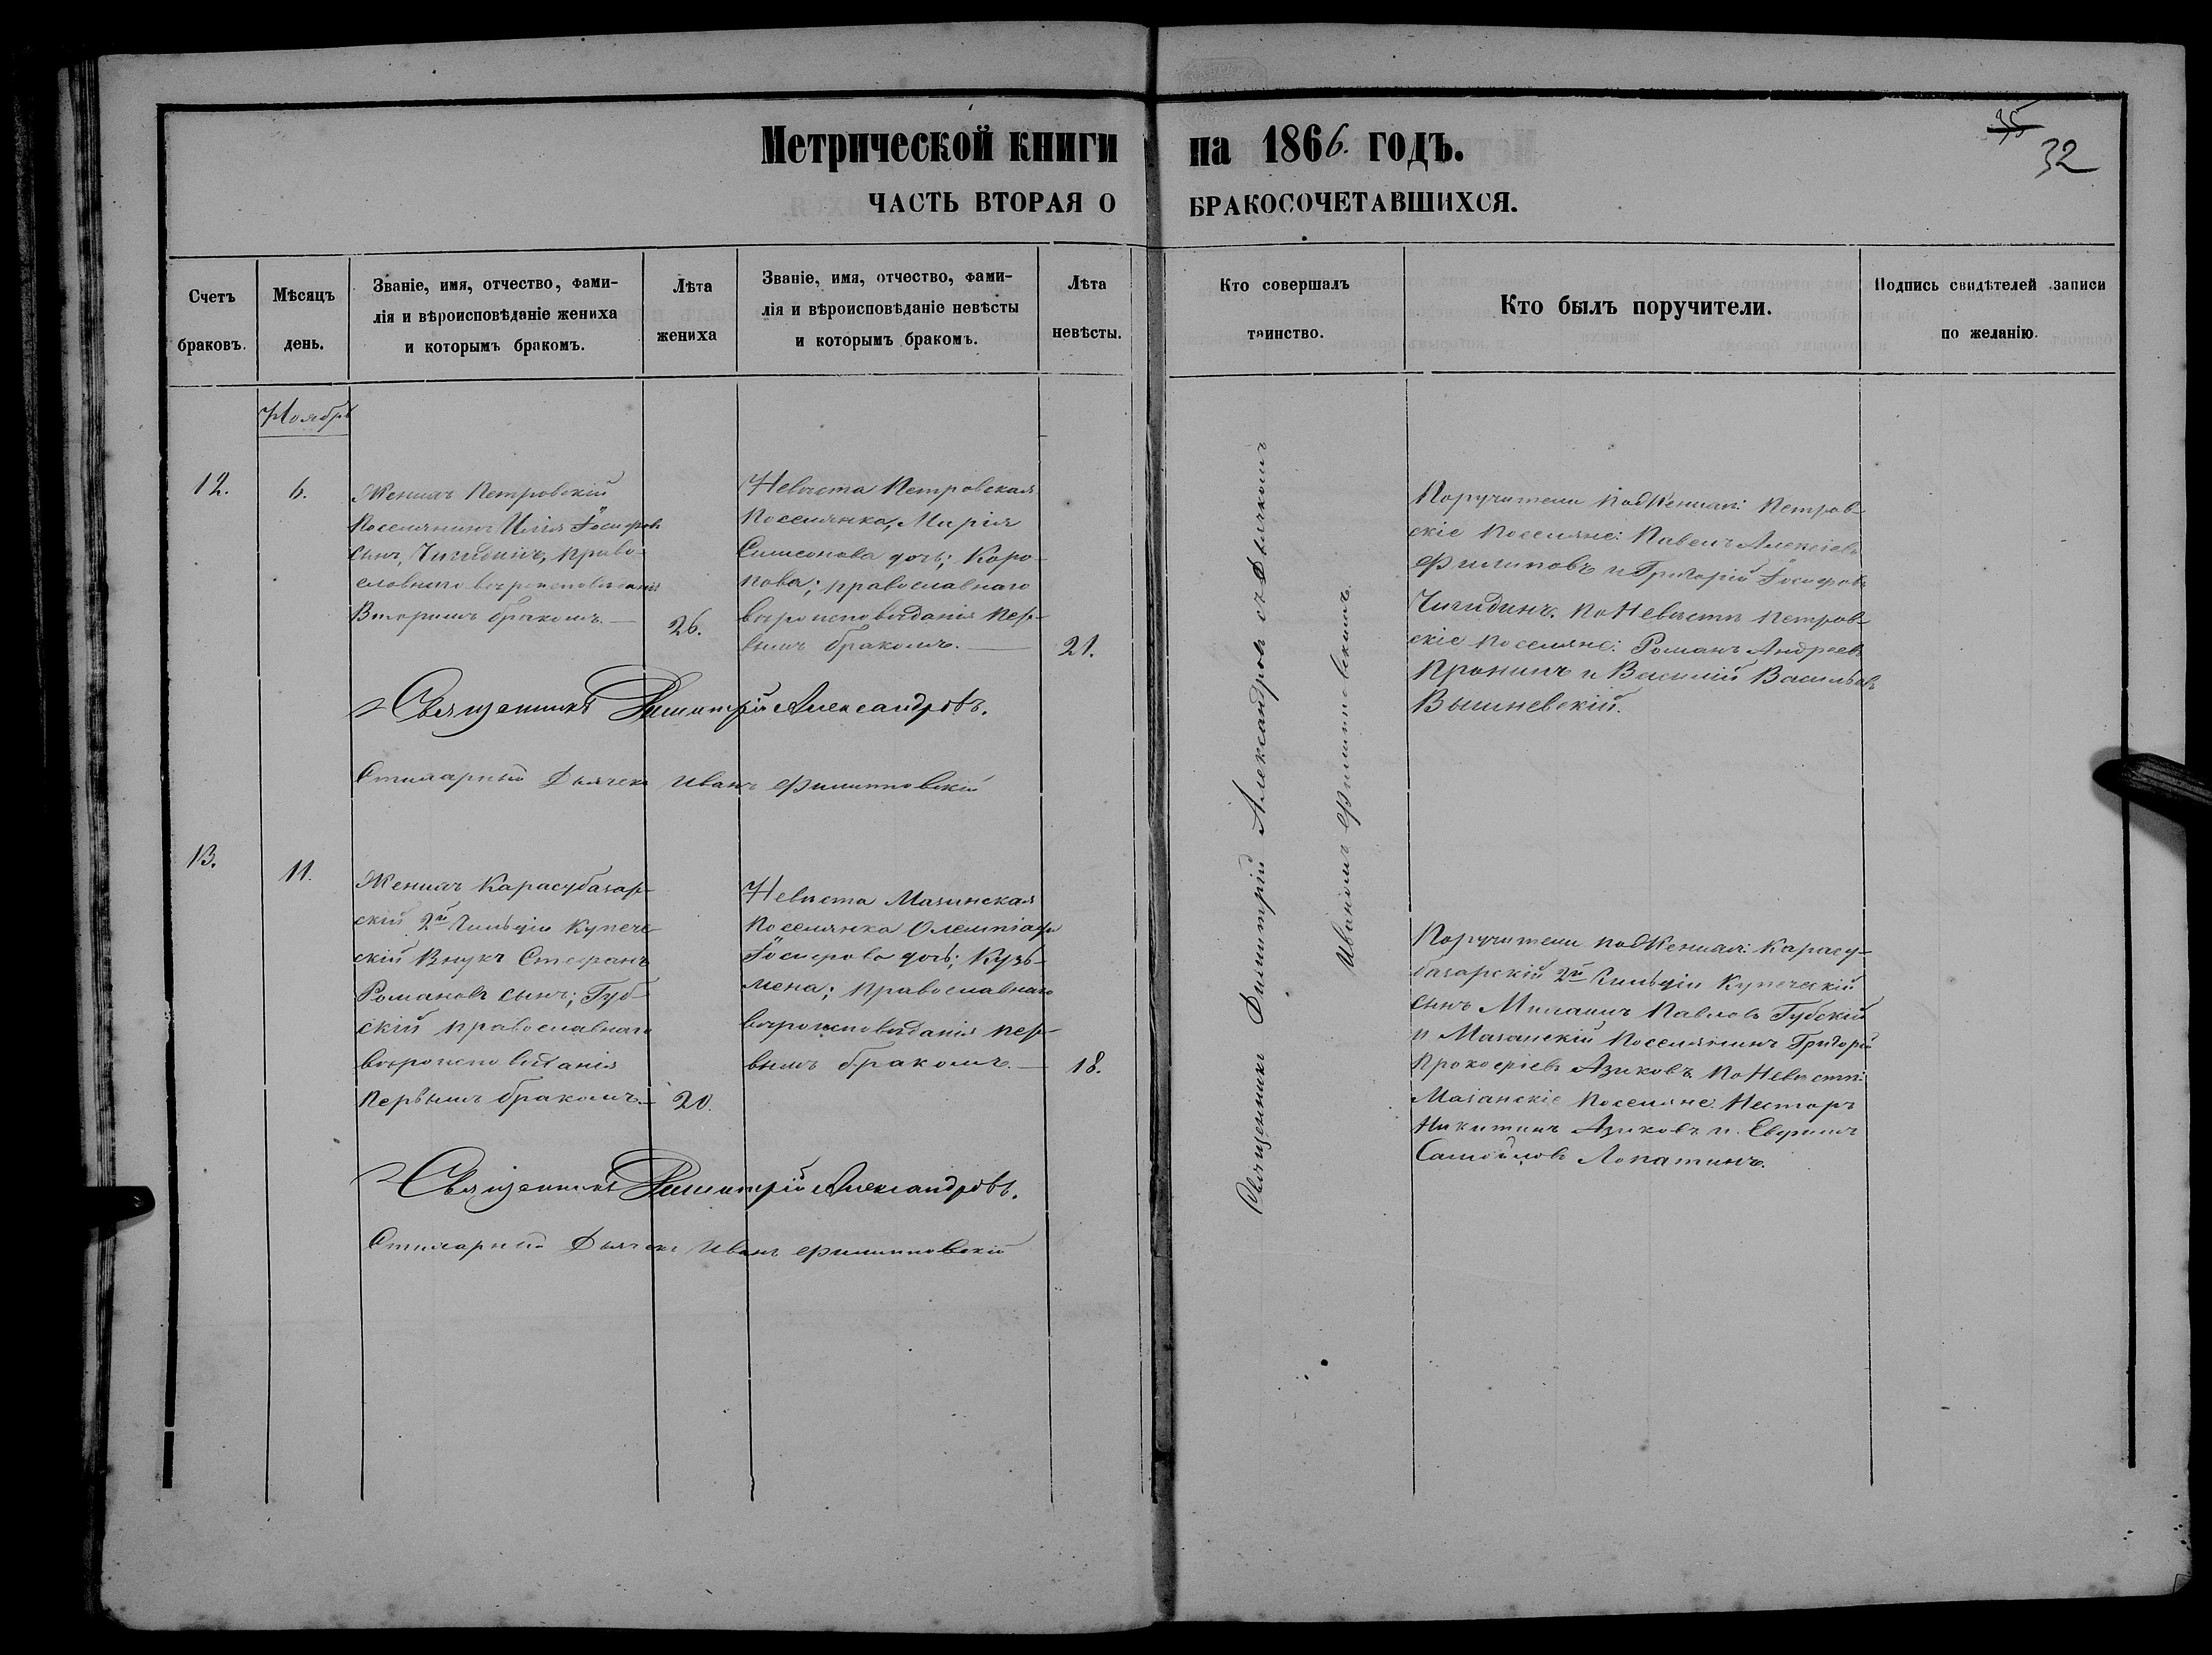 Метрической книги на 1866. годъ.
35
32
ЧАСТЬ ВТОРАЯ О БРАКОСОЧЕТАВШИХСЯ.
Счетъ браковъ.
Мѣсяцъ день.
Званіе, имя, отчество, фами-
лія и вѣроисповѣданіе жениха
и которымъ бракомъ.
Лѣта жениха
Званіе, имя, отчество, фами-
лія и вѣроисповѣданіе невѣсты
и которымъ бракомъ.
Лѣта невѣсты.
Кто совершалъ таинство.
Кто былъ поручители.
Подпись свидѣтелей записи
по желанію.
Ноябрь
12.
6.
Женихъ Петровскій
Поселянинъ Илія Іосифовъ
сынъ, Чигидинъ, право-
славнаго вѣроисповѣданія
Вторымъ бракомъ.
26.
Невѣста Петровская
Поселянка, Марія
Симеонова дочь; Коро-
пова; православнаго
вѣроисповѣданія пер-
вымъ бракомъ.
21.
Священникъ Димитрій Александровъ.
Стихарный Дьячекъ Иванъ Филипповскій
13.
11.
Женихъ Карасубазар-
скій 2й Гильдіи Купече-
скій Внукъ Стефанъ
Романовъ сынъ; Губ-
скій православнаго
вѣроисповѣданія
первымъ бракомъ.
20.
Невѣста Мазанская
Поселянка Олимпіада
Іосифова дочь; Кузь-
мена; православнаго
вѣроисповѣданія пер-
вымъ бракомъ.
18.
Священникъ Димитрій Александровъ.
Стихарный Дьячекъ Иванъ Филипповскій
Священникъ Димитрій Александровъ съ Дьячкомъ
Иваномъ Филипповскимъ.
Поручители по Женихѣ: Петров-
скіе поселяне: Павелъ Алексіевъ
Филиповъ и Григорій Іосифовъ
Чигидинъ. По Невѣстѣ Петров-
скіе поселяне: Романъ Андреевъ
Пронинъ и Василій Васильевъ
Вышневскій.
Поручители по Женихѣ: Карасу-
базарскій 2й Гильдіи Купеческій
сынъ Михаилъ Павловъ Губскій
и Мазанскій Поселянинъ Григорій
Прокофіевъ Азиковъ. По Невѣстѣ:
Мазанскіе поселяне: Несторъ
Никитинъ Азиковъ и
Самойловъ Лопатинъ.